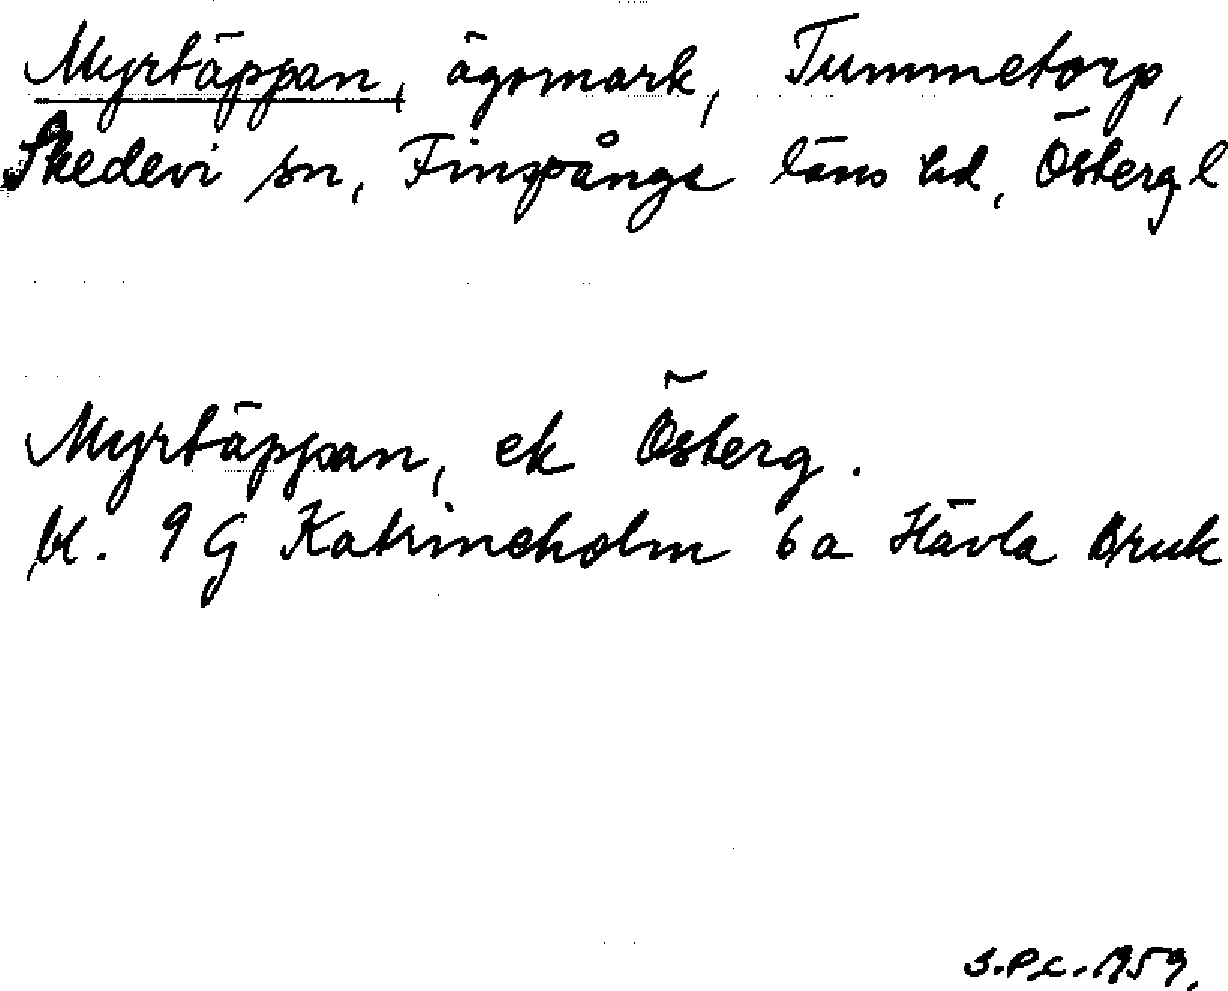 Myrtäppan, ägomark, Tummetorp,
Skedevi sn, Finspånga läns hd, Östergl
Myrtäppan, ek Österg.
bl. 9 G Katrineholm 6 a Hävla Bruk
1959.